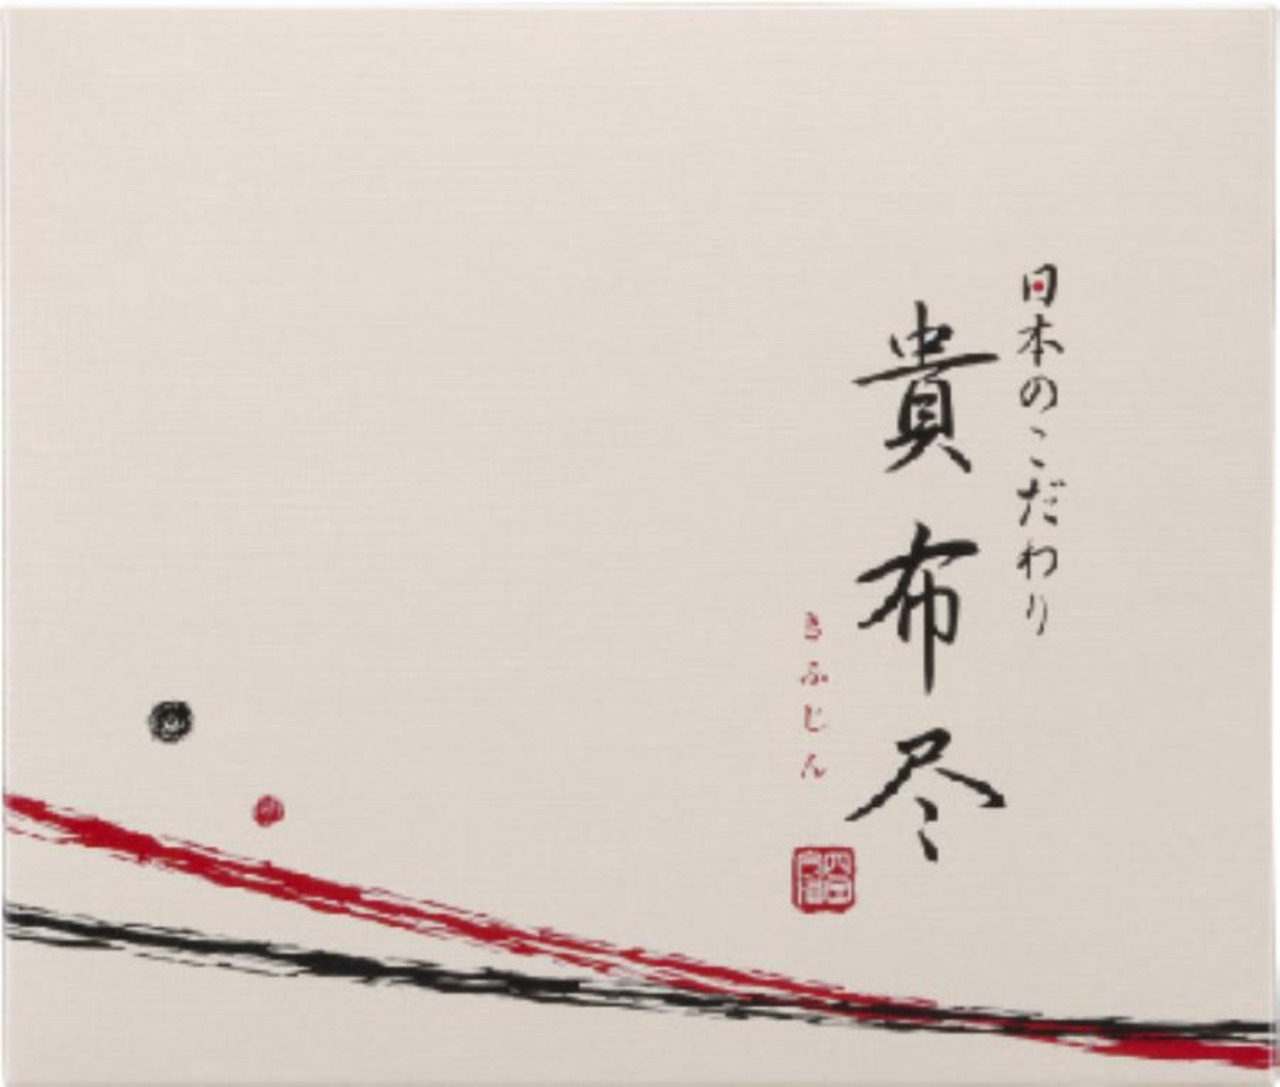 日本のこだわり
貴布尽
きふじん